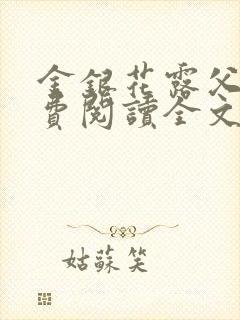 金銀花露父
費閱讀全文
姑蘇笑